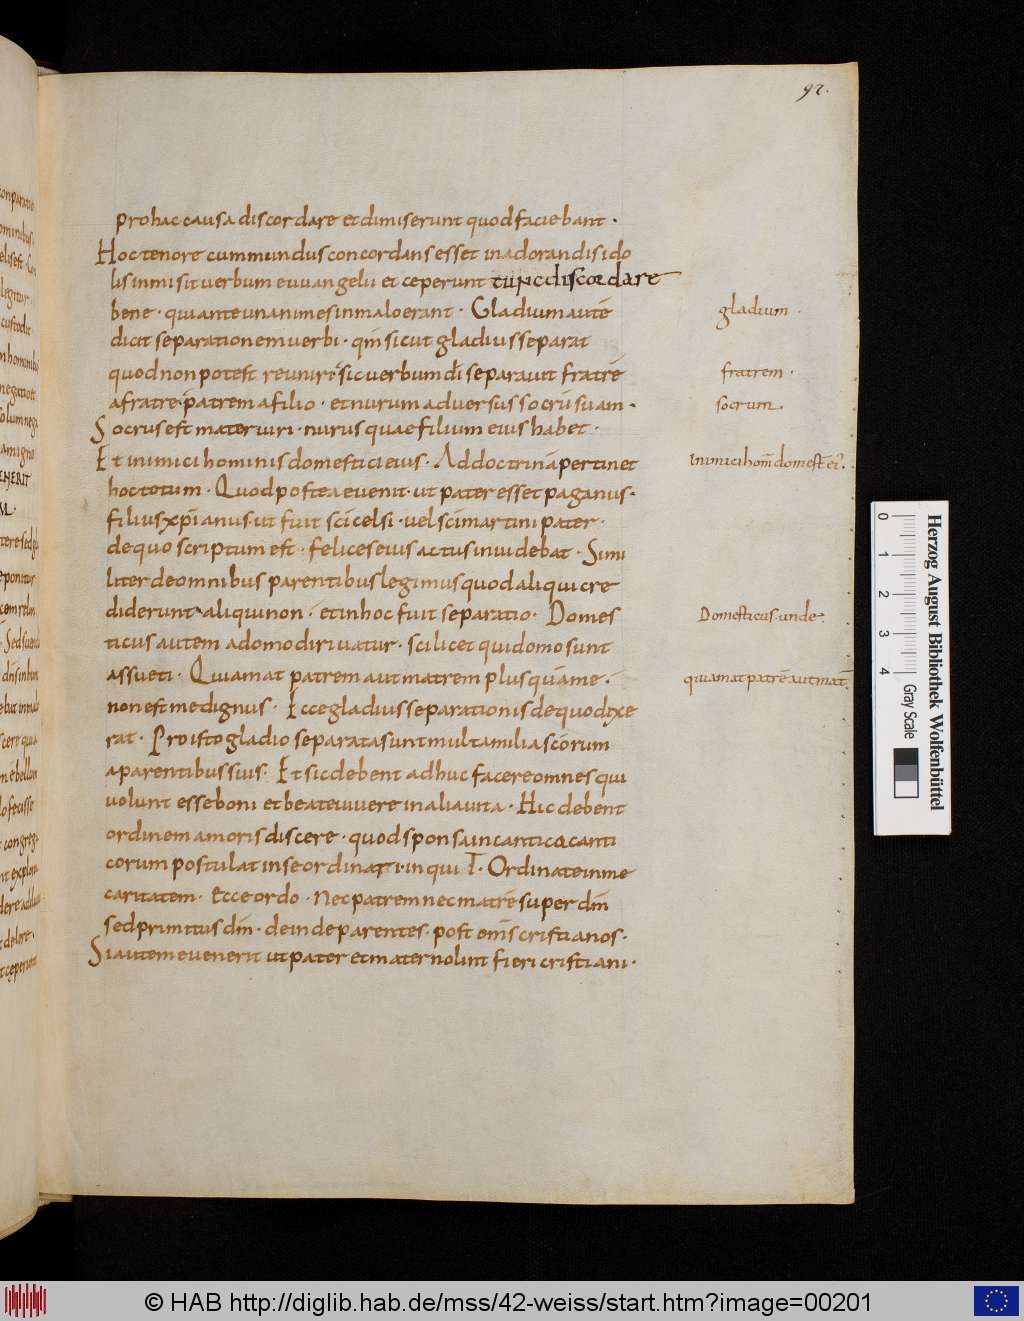 92.
pro hac causa discordare et dimiserunt quod faciebant ·
Hoc tenore cum mundus concordans esset in adorandis ido
lis inmisit uerbum euuangelii et ceperunt tunc discordare
bene · qui ante unanimes in malo erant · Gladium auté
dicit separationem uerbi · qm̄ sicut gladius separat
quod non potest reuniri sic uerbum dī separauit fratrē
a fratre · patrem a filio · et nurum aduersus socrū suam ·
Socrus est mater uiri · nurus quae filium eius habet ·
Et inimici hominis domestici eius · Ad doctrinā pertinet
hoc totum · Quod postea euenit · ut pater esset paganus ·
filius xp̄ianus · ut fuit sc̄i celsi · uel sc̄i martini pater ·
de quo scriptum est · felices eius actus inuidebat · Simi
liter de omnibus parentibus legimus quod aliqui cre
diderunt aliqui non · et in hoc fuit separatio · Domes
ticus autem a domo diriuatur · scilicet qui domo sunt
assueti · Qui amat patrem aut matrem plus quā me ·
non est me dignus · Ecce gladius separationis de quo dixe
rat · Pro isto gladio separata sunt multa milia sc̄orum
a parentibus suis · Et sic debent adhuc facere omnes qui
uolunt esse boni et beate uiuere in alia uita · Hic debent
ordinem amoris discere · quod sponsa in cantico canti
corum postulat in se ordinari · inquit · Ordinate in me
caritatem · Ecce ordo · Nec patrem nec matrē super dm̄
sed primitus dm̄ · deinde parentes · post om̄s cristianos ·
Si autem euenerit ut pater et mater nolint fieri cristiani ·
gladium ·
fratrem ·
socrum
inimici hom̄ domest ei᾽
Domesticus · unde ·
qui amat patrē aut mat̄
Herzog August Bibliothek Wolfenbüttel
0 1 2 3 4
Gray Scale
© HAB http://diglib.hab.de/mss/42-weiss/start.htm?image=00201